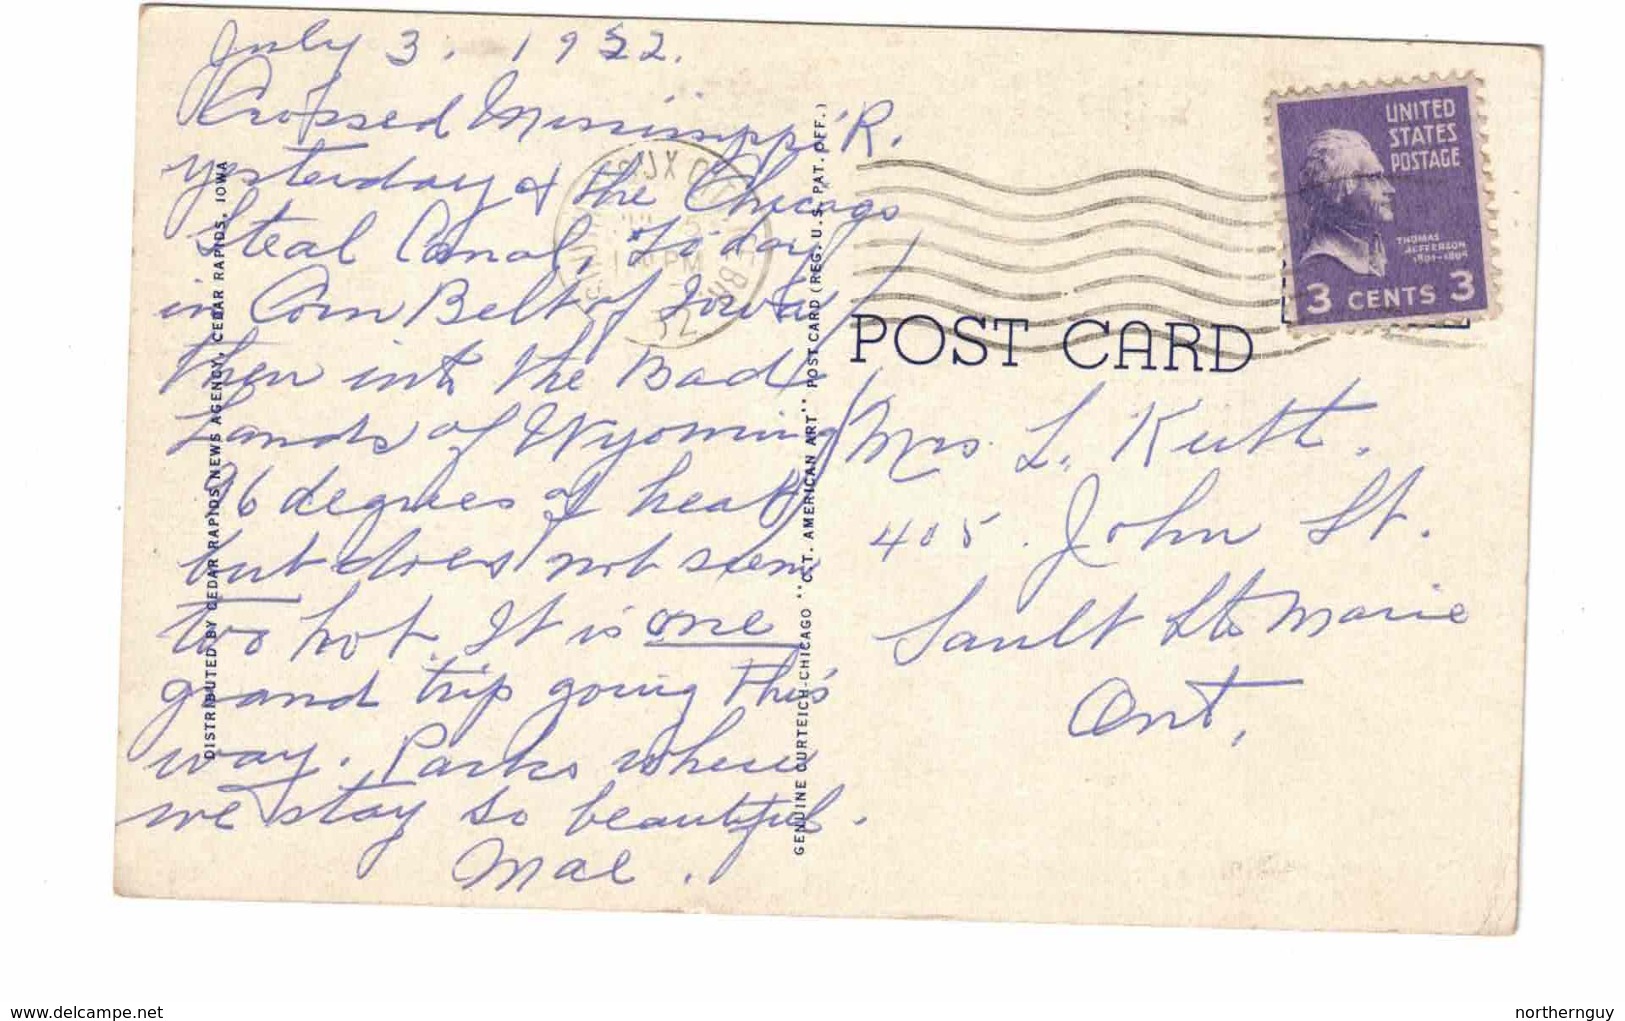 July 3, 1952.
Crossed Mississippi R.
yesterday & the Chicago
Steal Canal, To day
in Corn Belt of Iowa
then into the Bad
Lands of Wyoming
96 degrees of heat
but does not seem
too hot. It is one
grand trip going this
way. Parks where
we stay so beautiful.
Mae.
DISTRIBUTED BY CEDAR RAPIDS NEWS AGENCY, CEDAR RAPIDS, IOWA
GENUINE CURTEICH-CHICAGO "C.T. AMERICAN ART" POST CARD (REG. U.S. PAT. OFF.)
UNITED
STATES
POSTAGE
THOMAS
JEFFERSON
1801-1809
3 CENTS 3
POST CARD
Mrs. L. Kutt.
405. John St.
Sault Ste Marie
Ont.
delcampe.net
northernguy